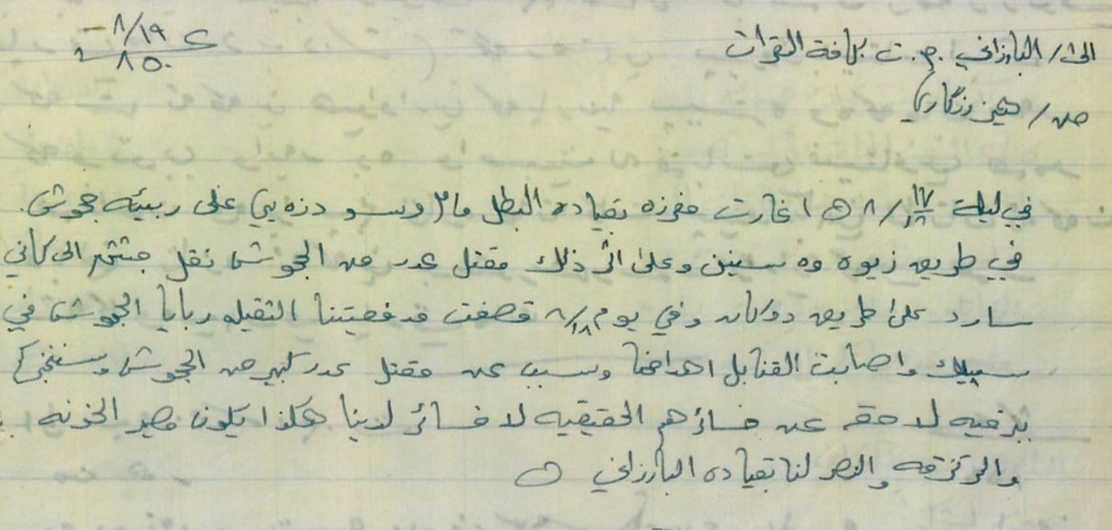 ع ٨/١٩
٨٥٠
الى/ البارزاني .م.ت كافة القوات
من/ هيز رزگاري
في ليلة ١٧/١٨ /٨ ه اغارت مفرزه بقياده البطل مام ويسو دزه يي على ربيئه جحوش.
في طريق زيوه وه سنين وعلى اثر ذلك مقتل عدد من الجحوش نقل جثثهم الى كاني
سارد على طريق دوكان وفي يوم ٨/١٨ قصفت مدفعيتنا الثقيله ربايا الجحوش في
سبيلك واصابت القنابل اهدافها وسبب عن مقتل عدد كبير من الجحوش وسنخبركم
ببرقيه لاحقه عن خسائرهم الحقيقيه لا خسائر لدينا هكذا يكون مصير الخونه
والمرتزقه والنصر لنا بقياده البارزاني ه